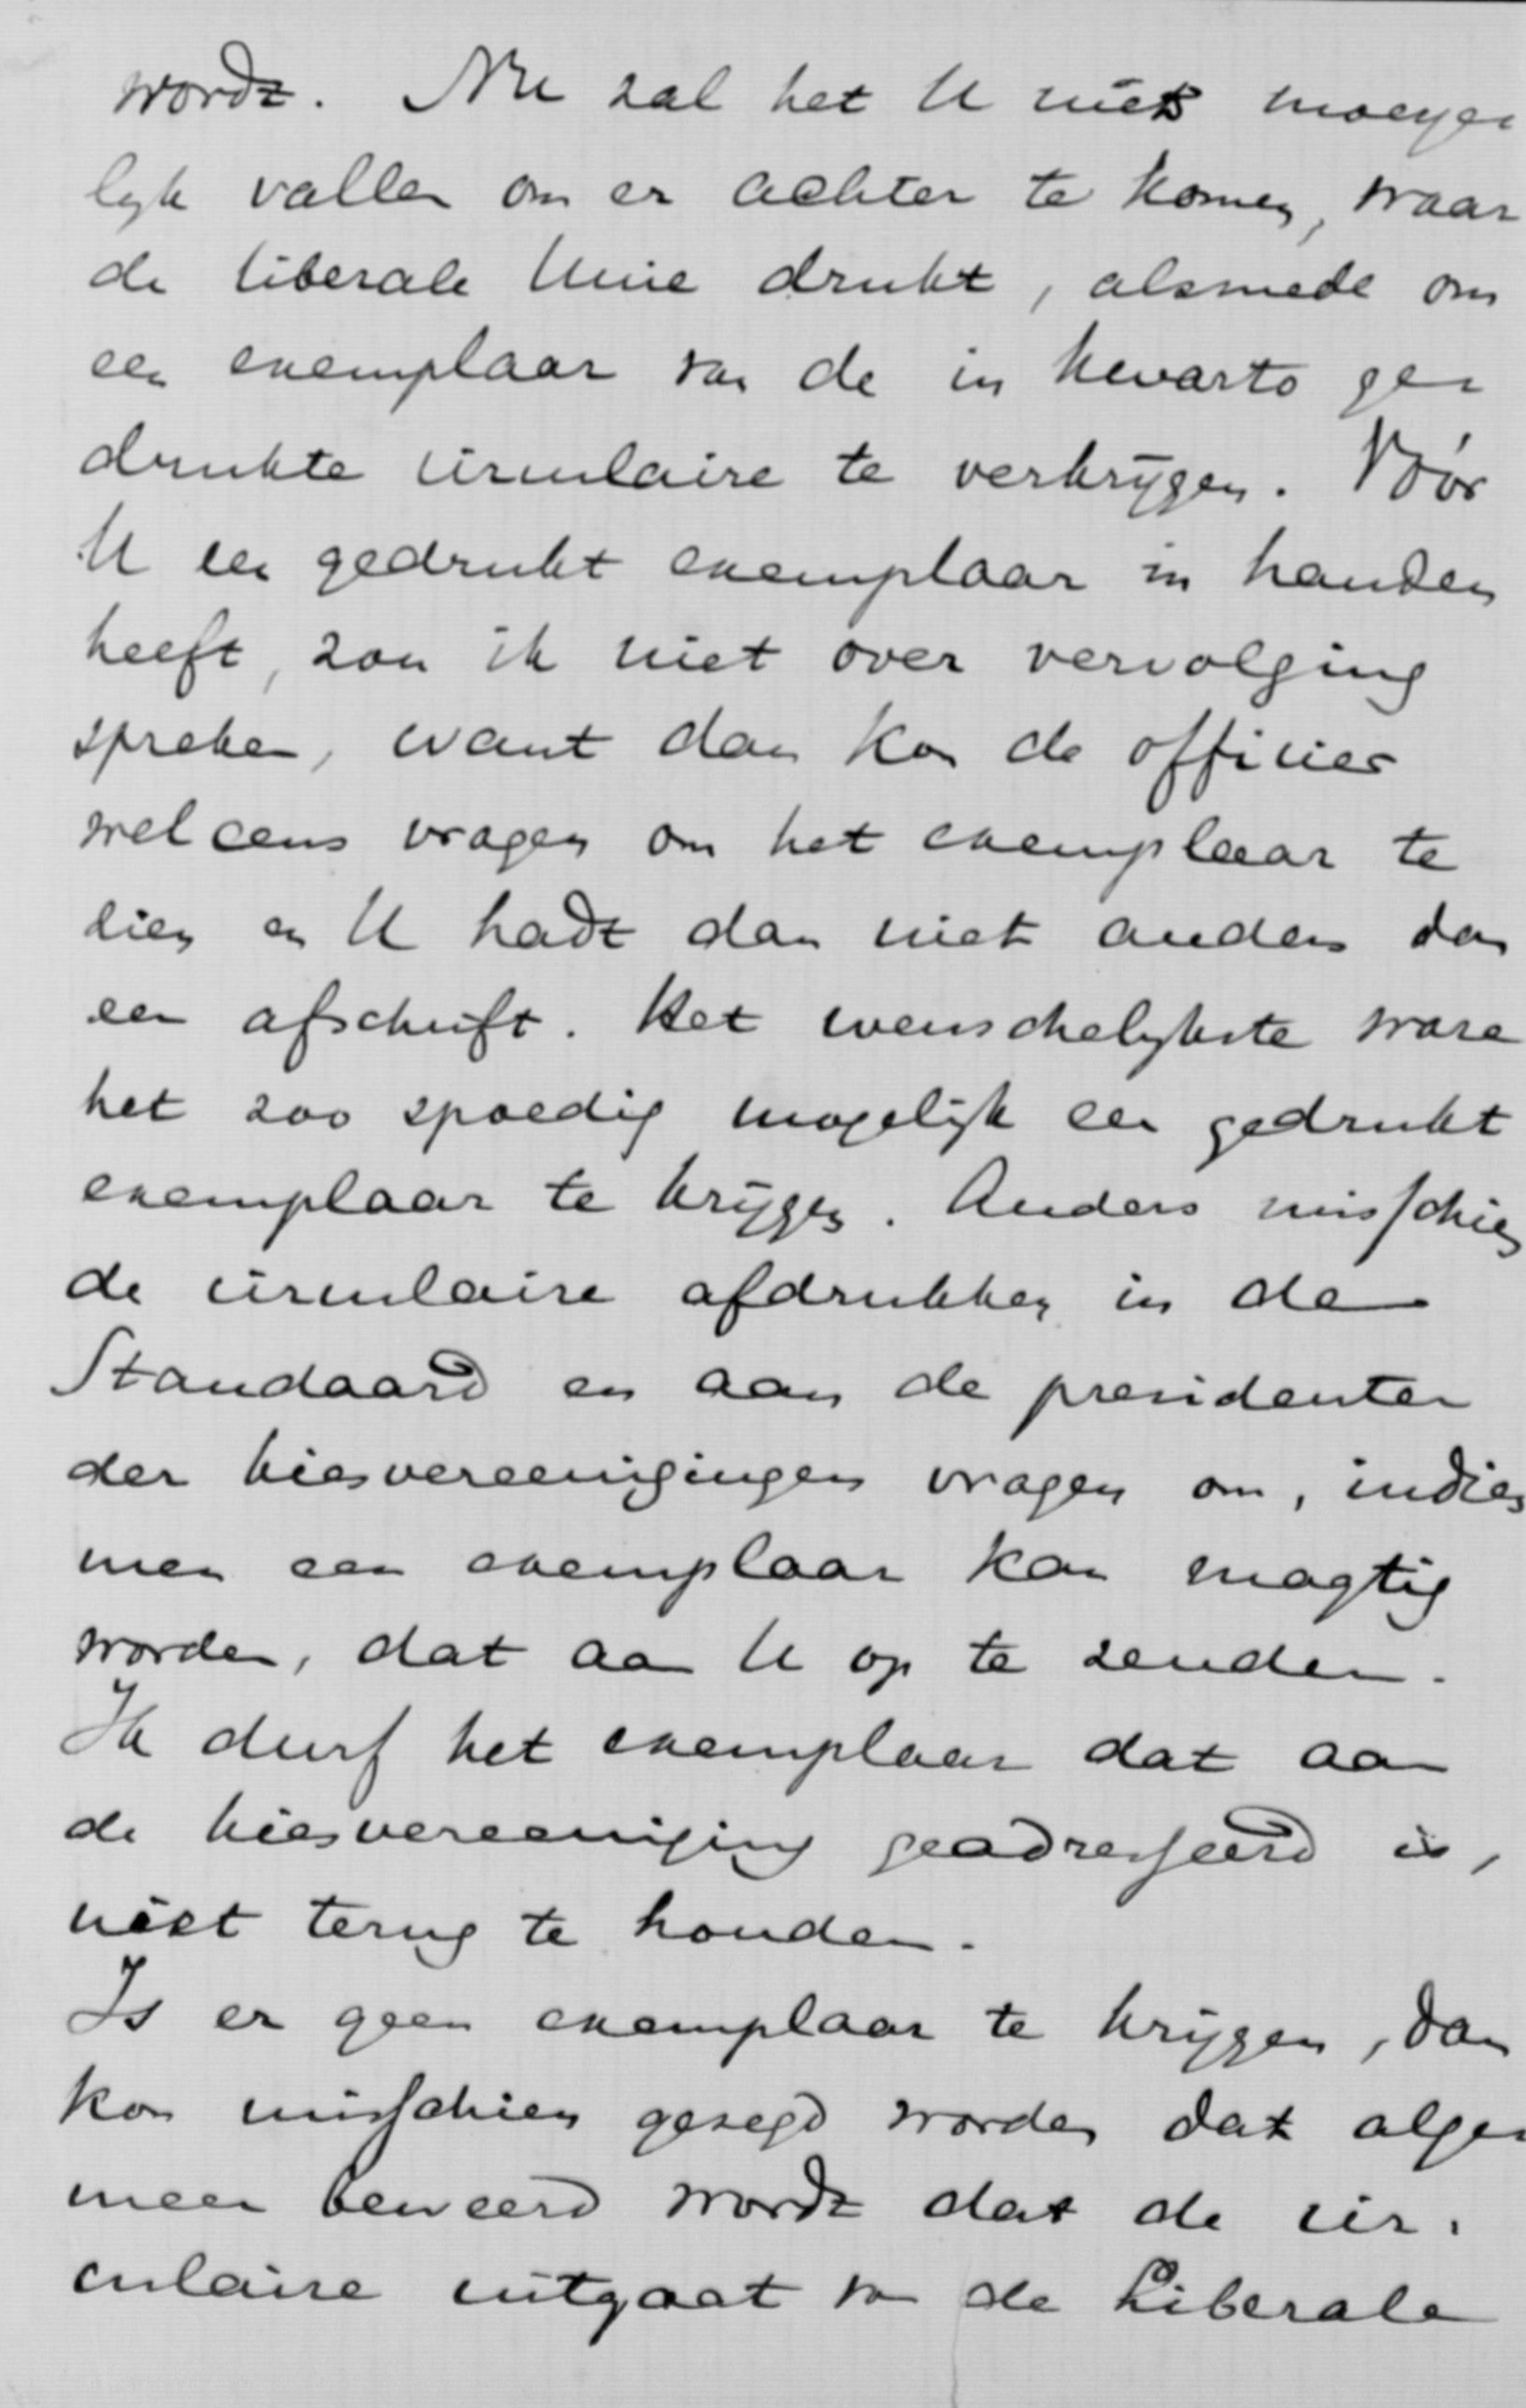 wordt. Nu zal het U niet moeye
lyk vallen om er achter te komen, waar
de liberale Unie drukt, alsmede om
een exemplaar van de in kwarto ge
drukte circulaire te verkrijgen. Vóór
U een gedrukt exemplaar in handen
heeft, zou ik niet over vervolging
spreken, want dan kon de officier
wel eens vragen om het exemplaar te
zien en U hadt dan niet anders dan
een afschrift. Het wenschelykste ware
het zoo spoedig mogelijk een gedrukt
exemplaar te krijgen. Anders misschien
de circulaire afdrukken in de
Standaard en aan de presidenten
der kiesvereenigingen vragen om, indien
men een exemplaar kan magtig
worden, dat aan U op te zenden.
Ik durf het exemplaar dat aan
de kiesvereeniging geadresseerd is,
niet terug te houden.
Is er geen exemplaar te krijgen, dan
kon misschien gezegd worden dat alge
meen beweerd wordt dat de cir.
culaire uitgaat van de Liberale